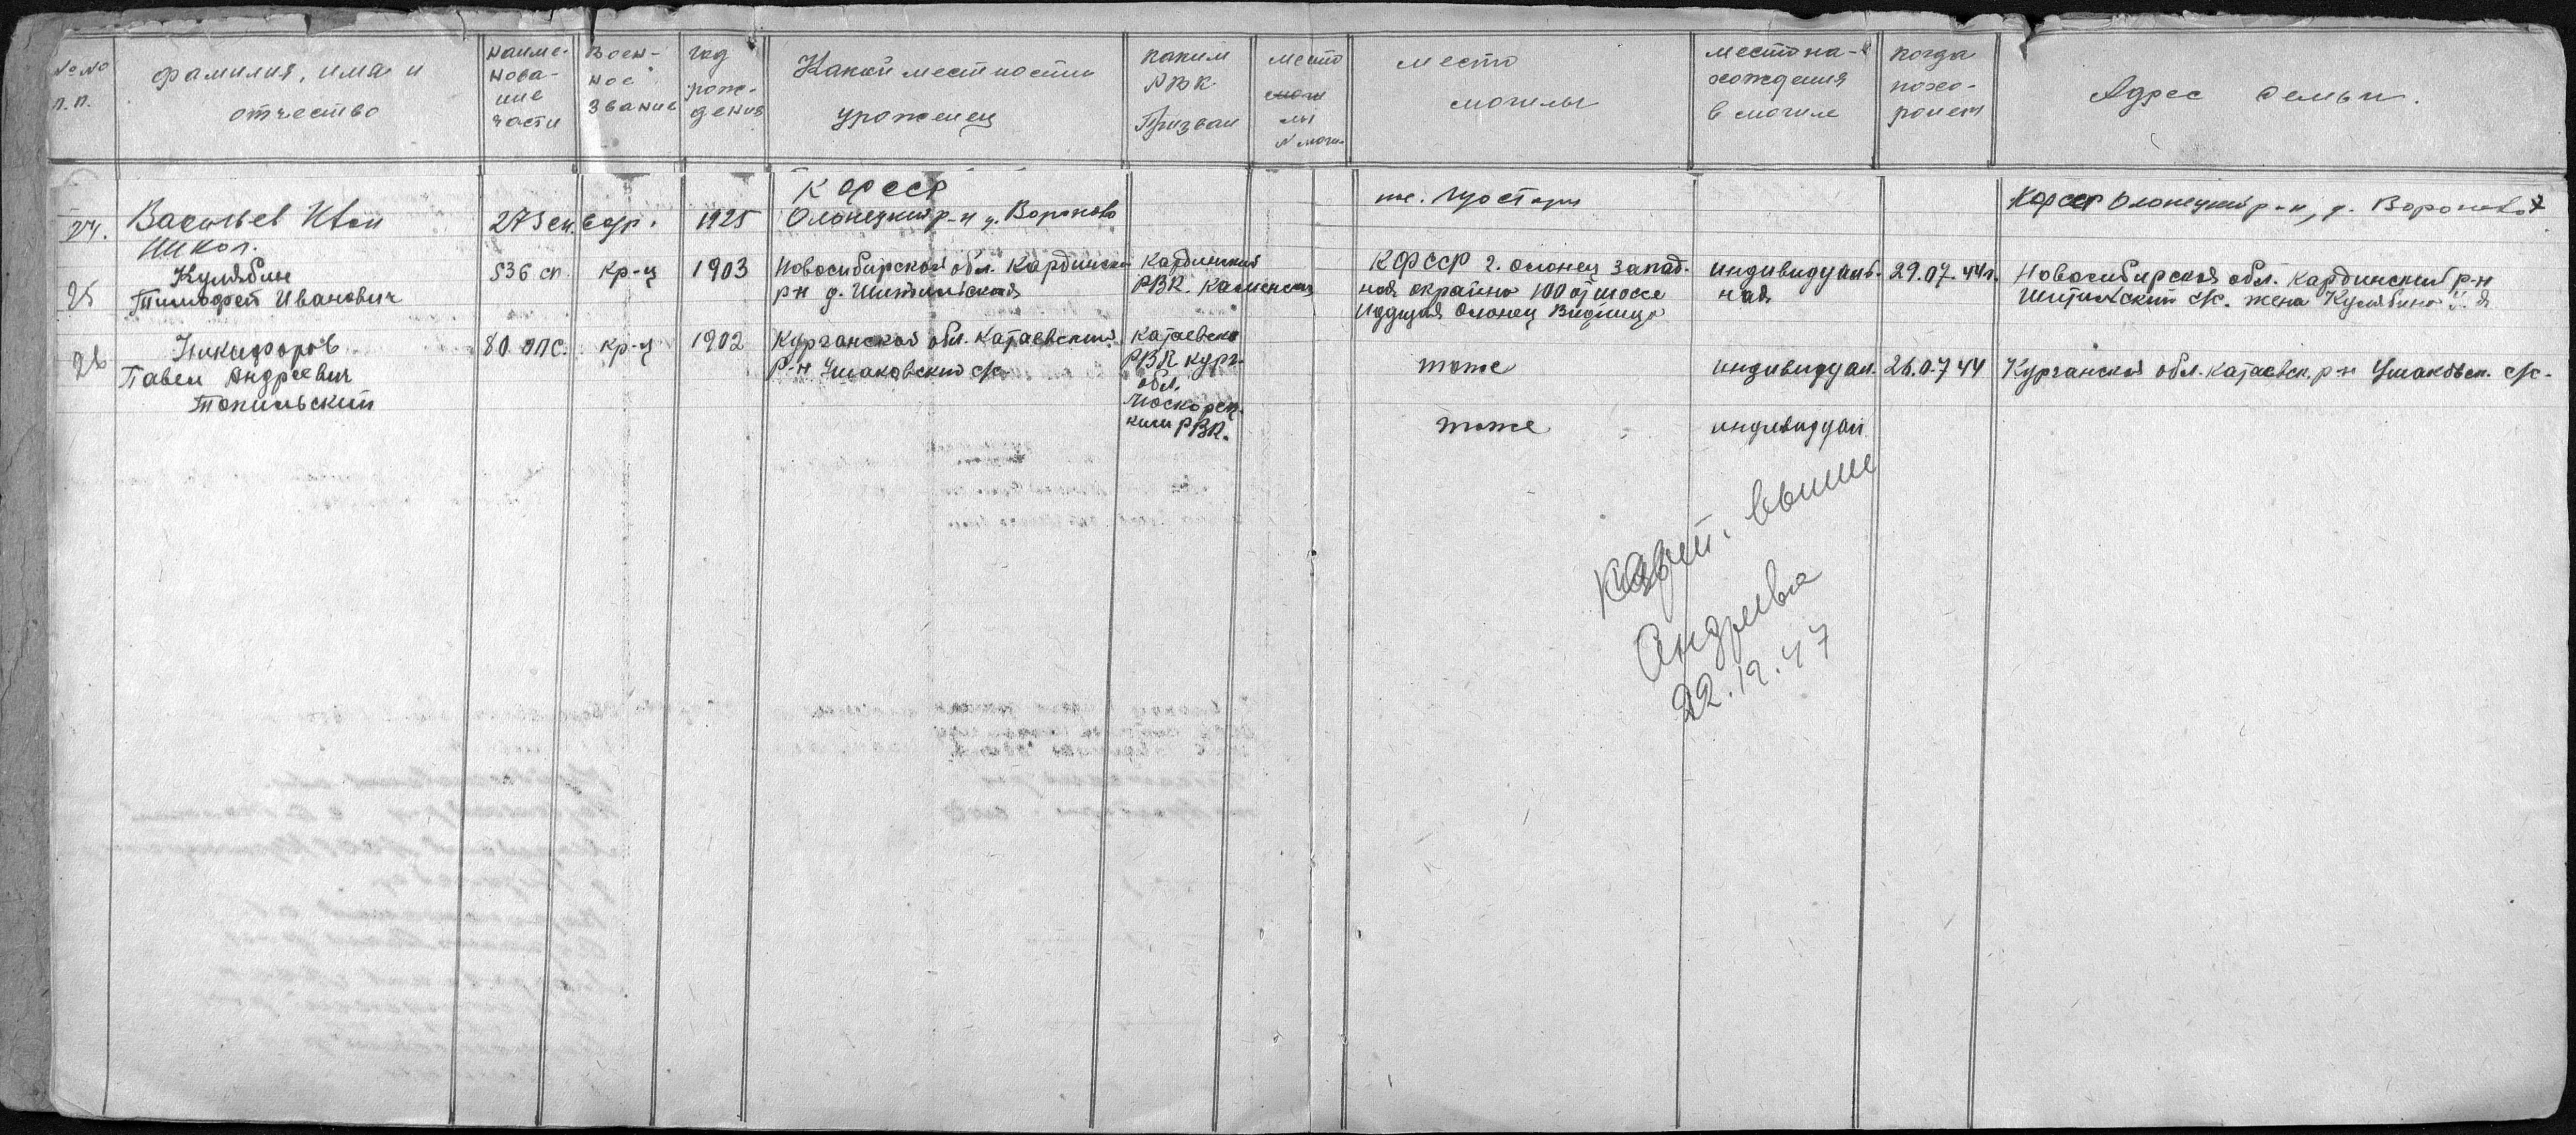 №№ п.п.
фамилия, имя и отчество
наиме-
нова-
ние
части
Воен-
ное
звание
год
рож-
дения
Какой местности
уроженец
каким
РВК.
Призван
место
моги
лы
N моги-
место
могилы
место на-
хождения
в могиле
когда
похо-
ронен
Адрес семьи.
24. Васильев Иван
Никол.
273 сп. 1925
КФССР
Олонецкий р-н д. Вороново
КФССР Олонецкий р-н, д. Вороново
25 Кулябин
Тимофей Иванович
536 сп кр-ц 1903
Новосибирской обл. Кардински
р-н д.
Кардинский
РВК. Каменский
КФССР г. Олонец запад-
ная окраина 100 от шоссе
идущая Олонец Видлица
индивидуаль-
ная
29.07.44г.
Новосибирская обл. Кардинский р-н
с/с. жена Кулябина
26 Никифоров
Павел Андреевич
80 ОПС. кр-ц 1902
Курганской обл. Катаевский
р-н Ушаковский с/с
Катаевско
РВК кург.
обл.
тоже
индивидуал.
26.0.7 44
Курганской обл. Катаевск. р-н Ушаковск. с/с.
Топильский
Москорец-
ким РВК.
тоже
индивидуал
выше
Андреева
22.12.47